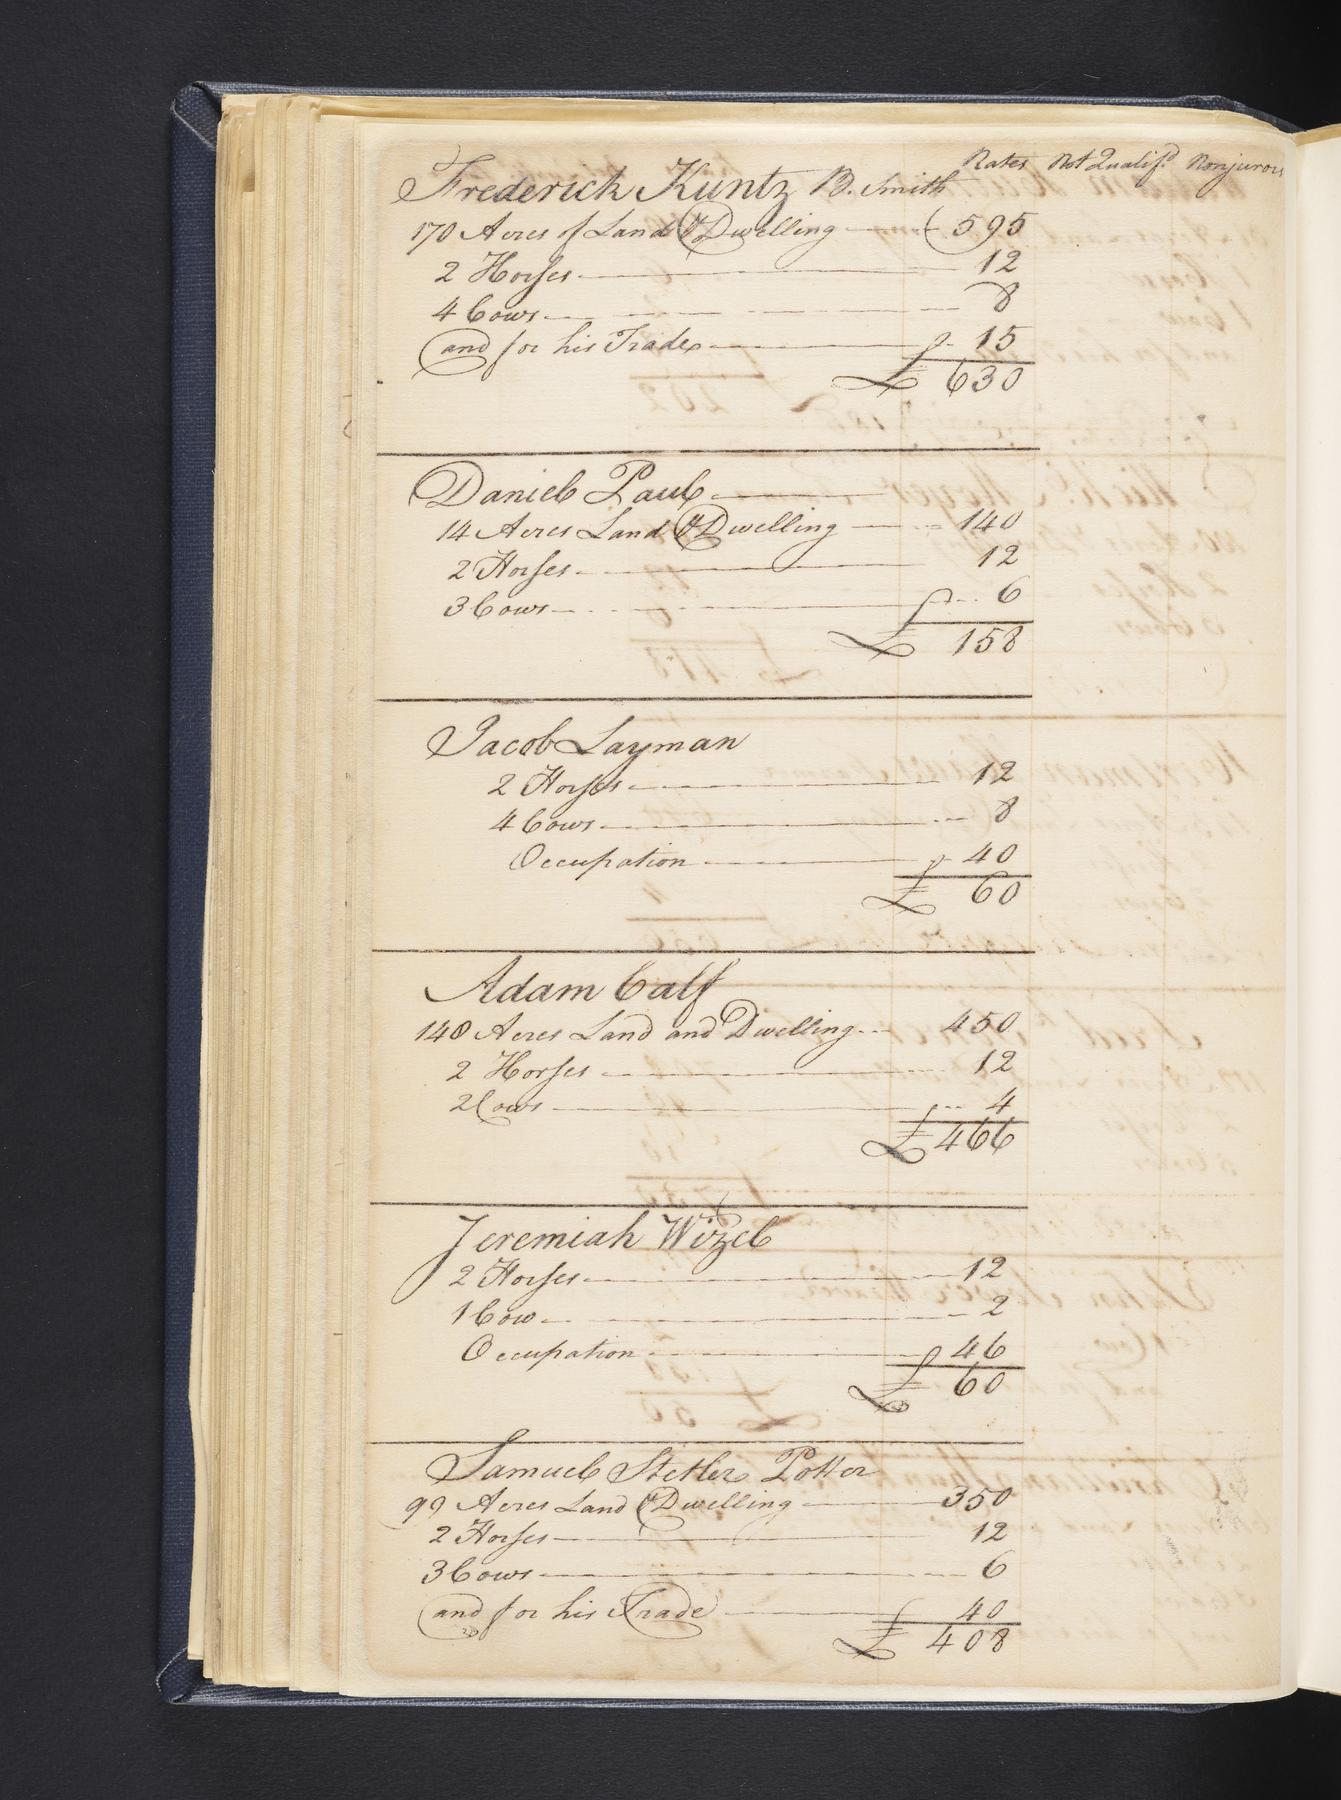 Rates Not Qualif.d Nonjurors
Frederick Kuntz B. Smith
170 Acres of Land & Dwelling 595
2 Horses 12
4 Cows 8
and for his Trade 15
£ 630
Daniel Paul
14 Acres Land & Dwelling 140
2 Horses 12
3 Cows 6
£ 158
Jacob Layman
2 Horses 12
4 Cows 8
Occupation 40
£ 60
Adam Calf
140 Acres Land and Dwelling 450
2 Horses 12
2 Cows 4
£ 466
Jeremiah Wizel
2 Horses 12
1 Cow 2
Occupation 46
£ 60
Samuel Stetler Potter
99 Acres Land & Dwelling 350
2 Horses 12
3 Cows 6
and for his Trade 40
£ 408